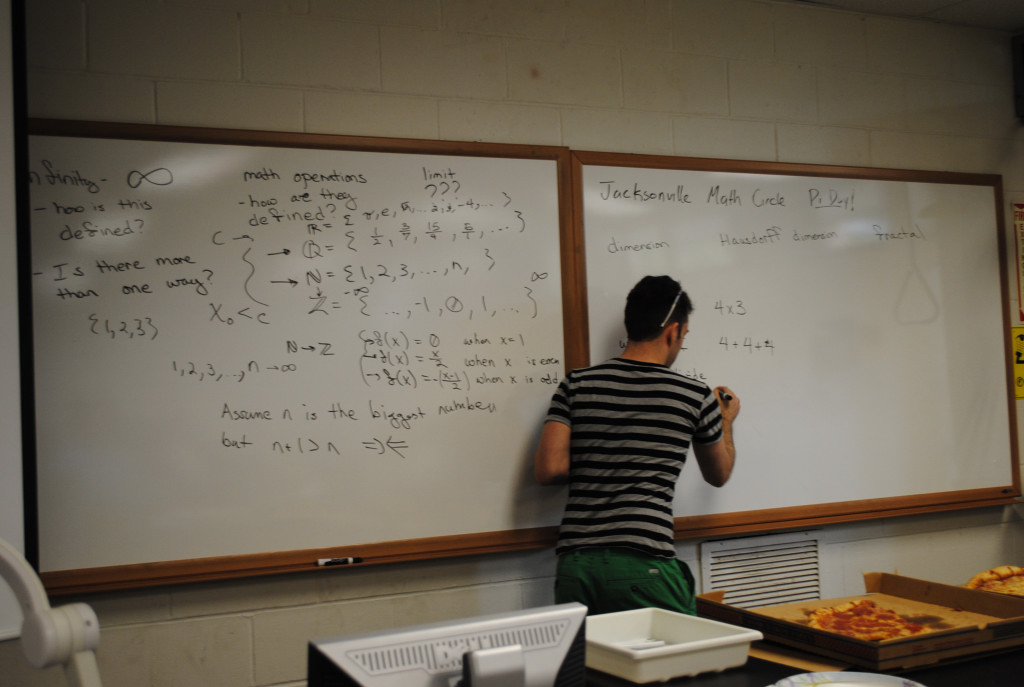 nfinity - ∞
- how is this
defined?
- Is there more
than one way?
{1,2,3}
math operations
- how are they
defined?
limit
???
ℝ = { π, e,
C →
→ ℚ = { 1/2, 3/7, 15/4, 5/1, ... }
→ ℕ = {1,2,3, ..., n, }
ℤ = -∞ { ..., -1, 0, 1, ... } ∞
ℵ₀ < c
ℕ → ℤ
f(x) = 0 when x=1
→ f(x) = x/2 when x is even
→ f(x) = -(x-1)/2 when x is odd
1,2,3, ..., n → ∞
Assume n is the biggest number
but n+1 > n ⇒⇐
Jacksonville Math Circle Pi Day!
dimension Hausdorff dimension fractal
4x3
4+4+4